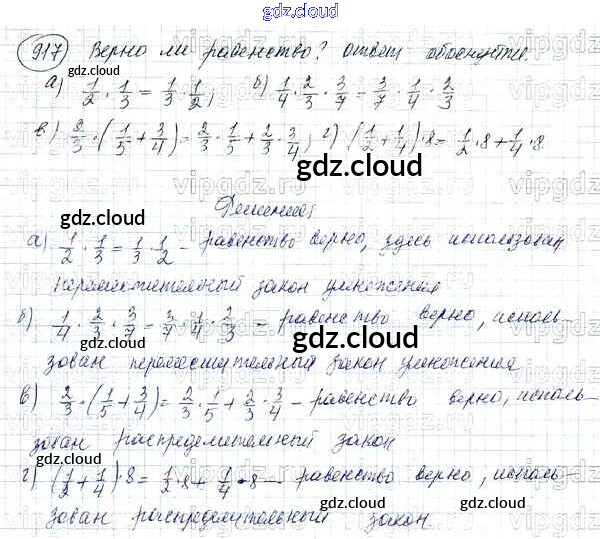 gdz.cloud
917 Верно ли равенство? Ответ обоснуйте.
а) 1/2 · 1/3 = 1/3 · 1/2, б) 1/4 · 2/3 · 3/7 = 3/7 · 1/4 · 2/3
в) 2/3 · (1/5 + 3/4) = 2/3 · 1/5 + 2/3 · 3/4, г) (1/2 + 1/4) · 8 = 1/2 · 8 + 1/4 · 8
gdz.cloud
Решение
а) 1/2 · 1/3 = 1/3 · 1/2 – равенство верно, здесь использован
переместительный закон умножения
б) 1/4 · 2/3 · 3/7 = 3/7 · 1/4 · 2/3 – равенство верно, исполь-
зован переместительный закон умножения
в) 2/3 · (1/5 + 3/4) = 2/3 · 1/5 + 2/3 · 3/4 – равенство верно, исполь-
зован распределительный закон
г) (1/2 + 1/4) · 8 = 1/2 · 8 + 1/4 · 8 – равенство верно, исполь-
зован распределительный закон